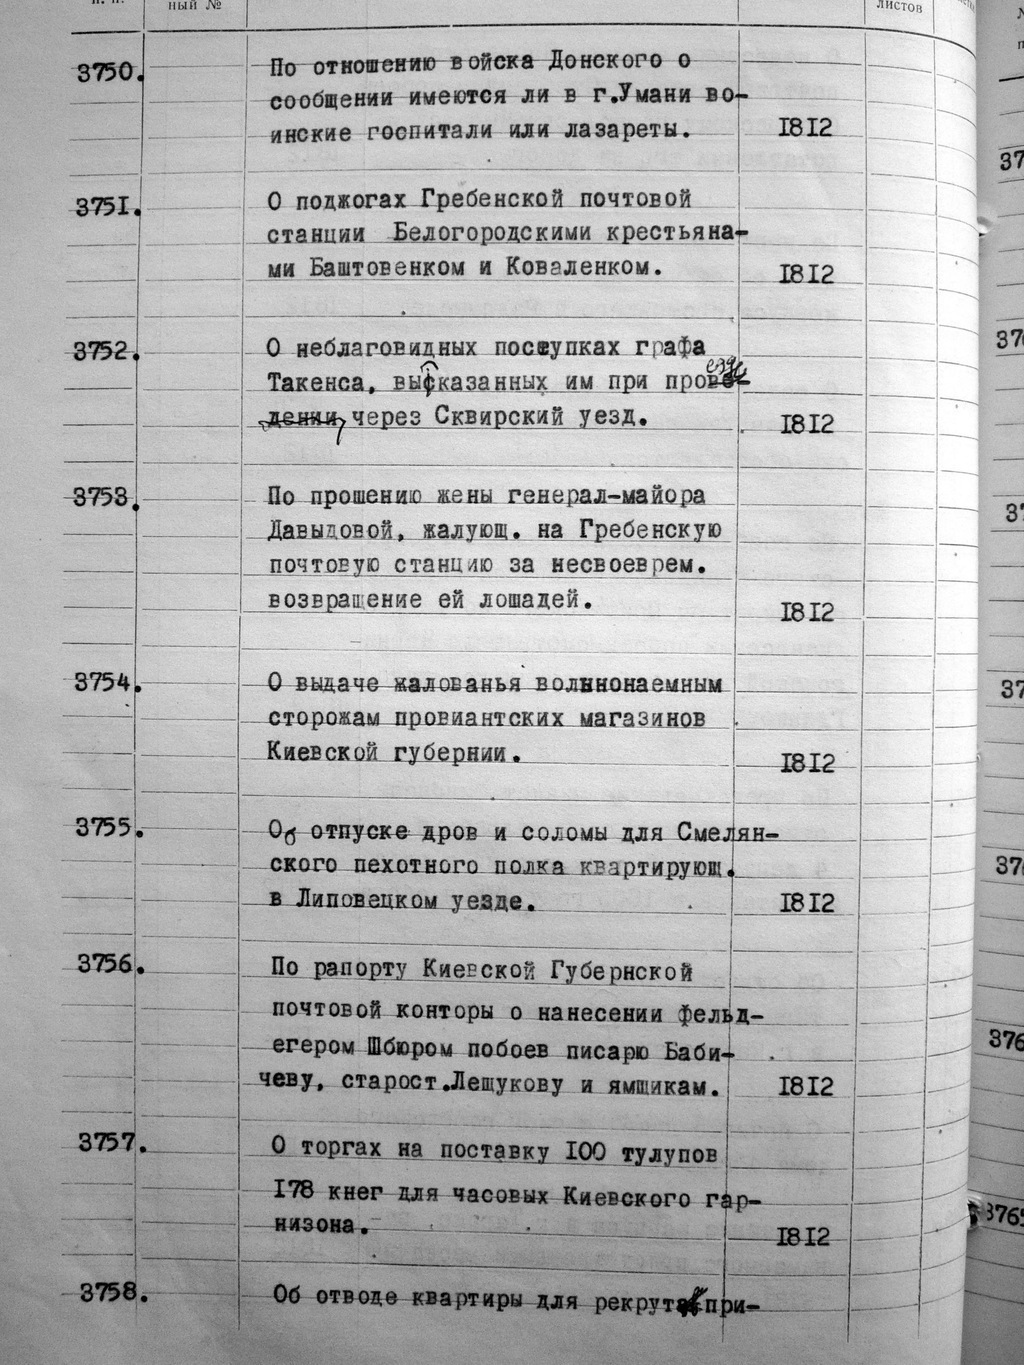 п. п.
ный №
листов
3750.
По отношению войска Донского о
сообщении имеются ли в г.Умани во-
инские госпитали или лазареты.
1812
3751.
О поджогах Гребенской почтовой
станции Белогородскими крестьяна-
ми Баштовенком и Коваленком.
1812
3752.
О неблаговидных поступках графа
Такенса, высказанных им при прове-
езде
дении через Сквирский уезд.
1812
3753.
По прошению жены генерал-майора
Давыдовой, жалующ. на Гребенскую
почтовую станцию за несвоеврем.
возвращение ей лошадей.
1812
3754.
О выдаче жалованья вольнонаемным
сторожам провиантских магазинов
Киевской губернии.
1812
3755.
Об отпуске дров и соломы для Смелян-
ского пехотного полка квартирующ.
в Липовецком уезде.
1812
3756.
По рапорту Киевской Губернской
почтовой конторы о нанесении фельд-
егером Шбюром побоев писарю Баби-
чеву, старост.Лещукову и ямщикам.
1812
3757.
О торгах на поставку 100 тулупов
178 кнег для часовых Киевского гар-
низона.
1812
3758.
Об отводе квартиры для рекрут при-
37
376
37
37
376
376
3765